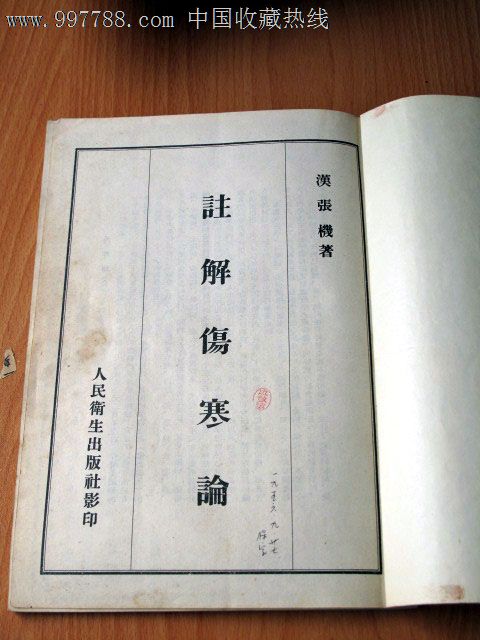 www.997788.com 中国收藏热线
漢張機著
註解傷寒論
人民衛生出版社影印
一九五六.九.廿七